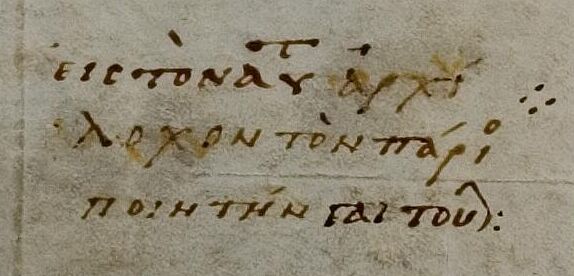 εἰς τὸν αυτ ἀρχί
λοχον τὸν πάριο
ποιητήν γαιτουλ: